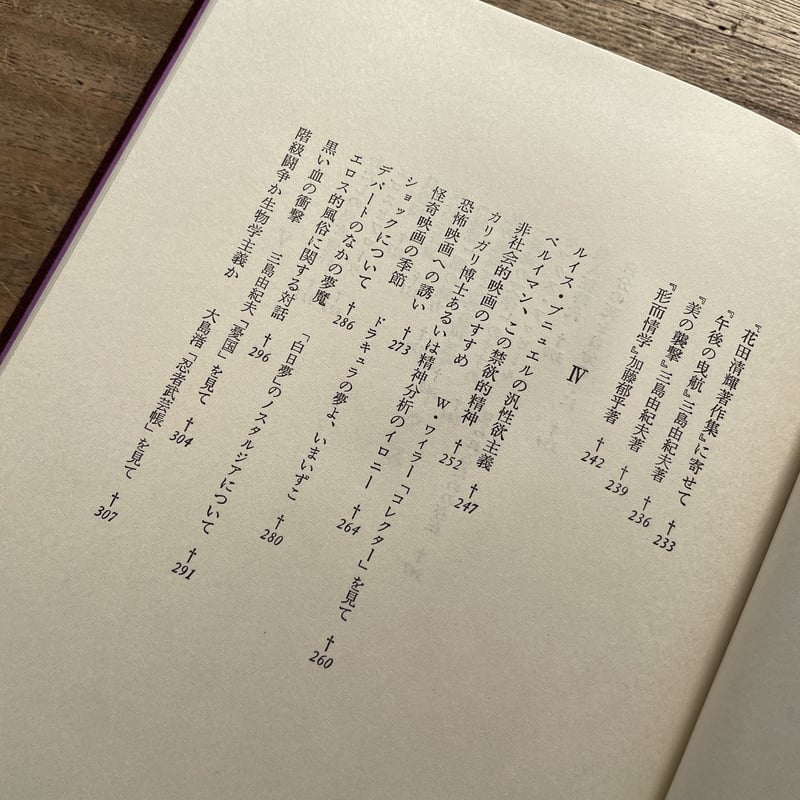 『花田清輝著作集』に寄せて †233
『午後の曳航』三島由紀夫著 †236
『美の襲撃』三島由紀夫著 †239
『形而情学』加藤郁乎著 †242
Ⅳ
ルイス・ブニュエルの汎性欲主義 †247
ベルイマン、この禁欲的精神 †252
非社会的映画のすすめ W・ワイラー「コレクター」を見て †260
カリガリ博士あるいは精神分析のイロニー †264
恐怖映画への誘い †273
怪奇映画の季節 ドラキュラの夢よ、いまいずこ †280
ショックについて †286
デパートのなかの夢魔 「白日夢」のノスタルジアについて †291
エロス的風俗に関する対話 †296
黒い血の衝撃 三島由紀夫「憂国」を見て †304
階級闘争か生物学主義か 大島渚「忍者武芸帳」を見て †307